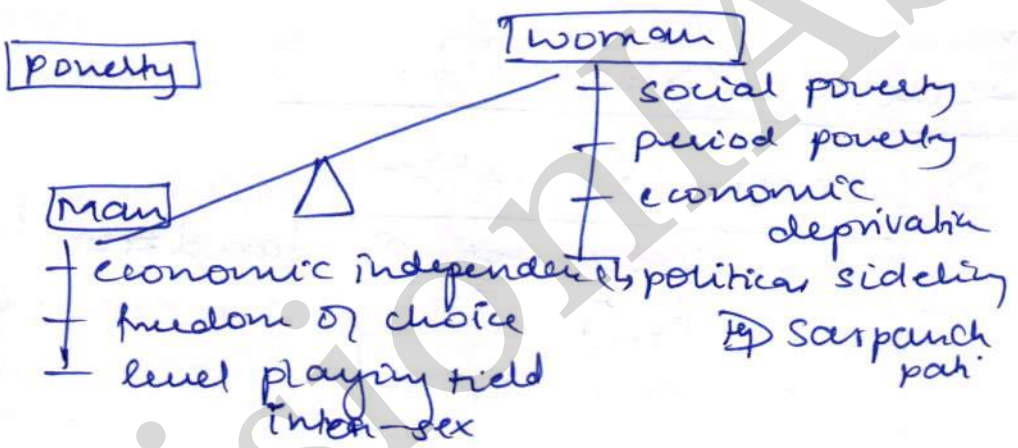 poverty
woman
social poverty
period poverty
economic
deprivation
political sideling
eg Sarpanch
pati
Man
economic independence
freedom of choice
level playing field
inter-sex